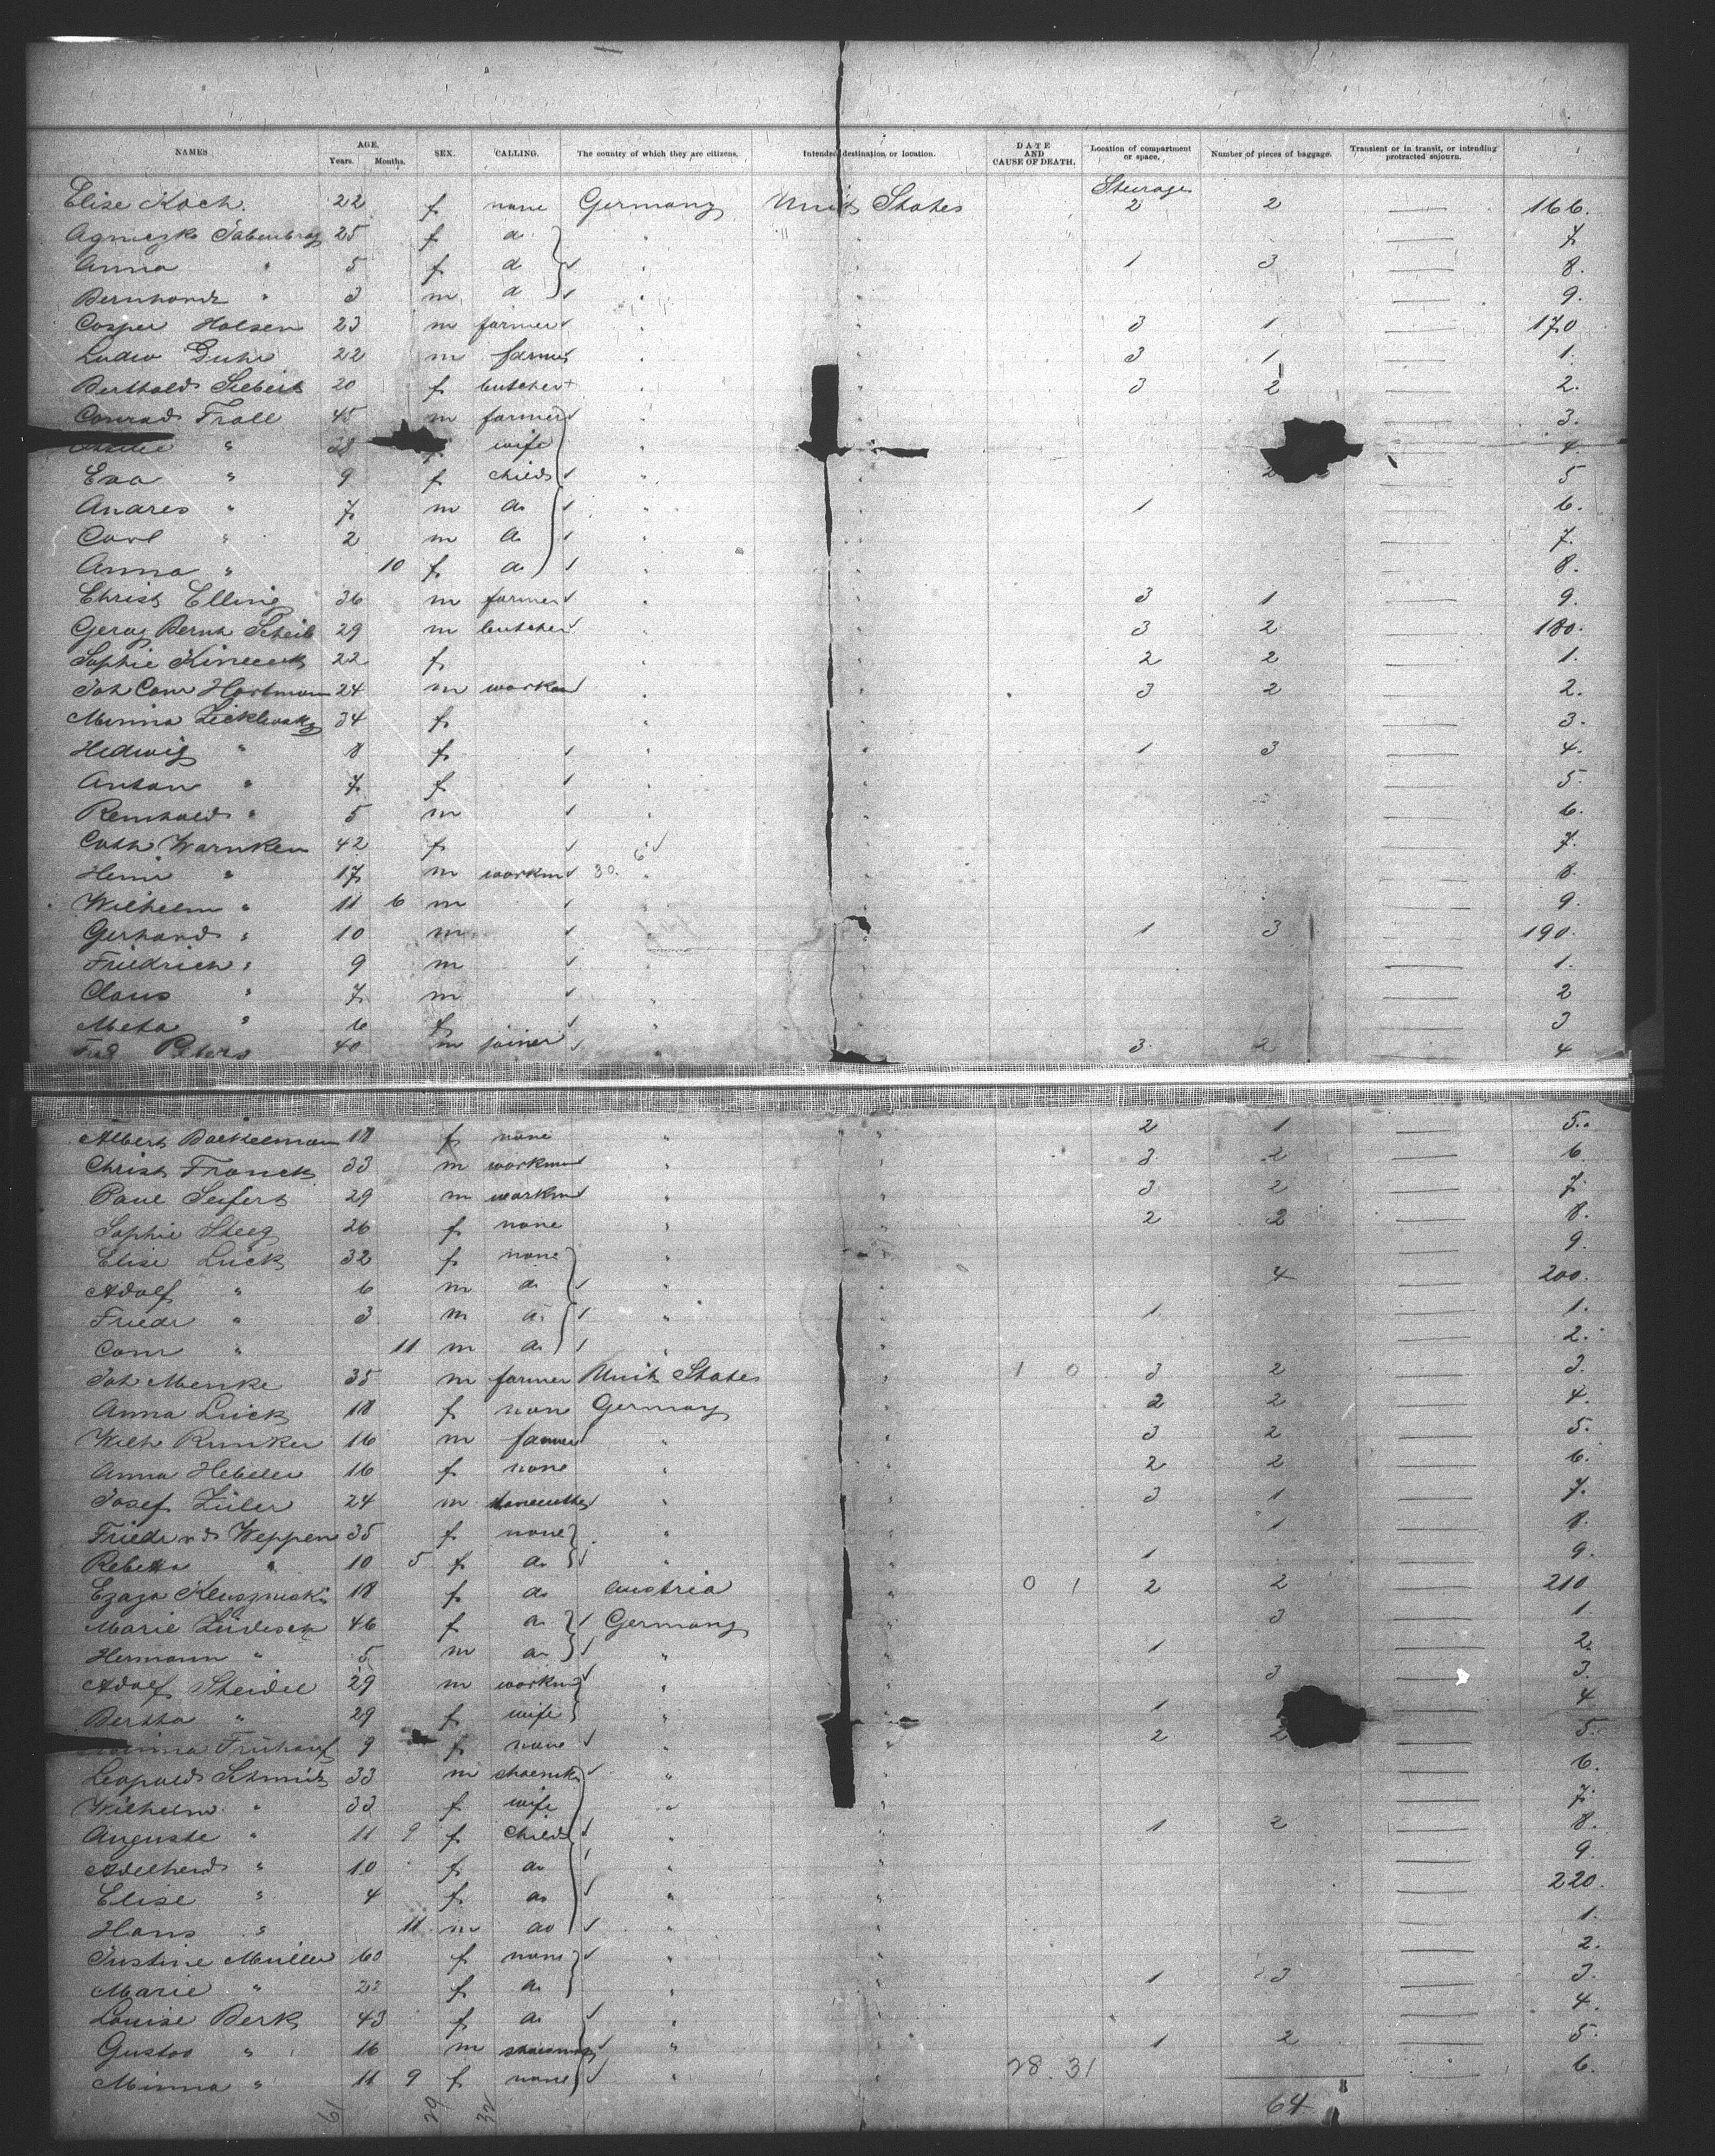 NAMES AGE. Years. Months. SEX. CALLING. The country of which they are citizens. Intended destination or location. DATE AND CAUSE OF DEATH. Location of compartment or space. Number of pieces of baggage. Transient or in transit, or intending protracted sojourn.
Steerage
Elise Koch. 22 f none Germany Unit States 2 2 — 166.
Agnieszka 25 f d " " — 7
Anna " 5 f d " " 1 3 — 8.
Bernhard " 3 m d " " — 9.
Casper Holsen 23 m farmer " " 3 1 — 170
Ludw Duhr 22 m farmer " " 3 1 — 1.
Berthold Siebert 20 f butcher " " 3 2 — 2.
Conrad Trall 45 m farmer " " — 3.
" 38 wife " " — 4.
Eva " 9 f child " " 2 — 5
Andres " 7 m do " " 1 — 6.
Carl " 2 m do " " — 7.
Anna " 10 f do " " — 8.
Christ Elling 36 m farmer " " 3 1 — 9.
Georg Bernh Scheib 29 m butcher " " 3 2 — 180.
Sophie 22 f " " 2 2 — 1.
Joh Conr Hartmann 24 m workm " " 3 2 — 2.
Minna 34 f " " — 3.
Hedwig " 8 f " " 1 3 — 4.
Anton " 7 f " " — 5.
Reinhold " 5 m " " — 6.
Cath Warnken 42 f " " — 7.
Heinr " 17 m workm 30. 6 " " — 8.
Wilhelm " 11 6 m " " — 9.
Gerhard " 10 m " " 1 3 — 190.
Friedrich " 9 m " " — 1.
Claus " 7 m " " — 2
Meta " 6 f " " — 3
Fred Peters 40 m joiner " " 3 2 — 4
Albert Boekelmann 18 f none " " 2 1 — 5.
Christ Franck 33 m workm " " 3 2 — 6.
Paul Seifert 29 m workm " " 3 2 — 7.
Sophie Steeg 26 f none " " 2 2 — 8.
Elise Luck 32 f none " " — 9.
Adolf " 6 m do " " 4 — 200.
Friedr " 3 m do " " 1 — 1.
Conr " 11 m do " " — 2.
Joh Menke 35 m farmer Unit States " 1 0 3 2 — 3.
Anna Luck 18 f none Germany " 2 2 — 4.
Wilh Runker 16 m farmer " " 3 2 — 5.
Anna Hebeler 16 f none " " 2 2 — 6.
Josef Züler 24 m stonecutter " " 3 1 — 7.
Friedr v d Weppen 35 f none " " 1 — 8.
Rebekka " 10 5 f do " " 1 — 9.
18 f do Austria " 0 1 2 2 — 210
Marie 46 f do Germany " 3 — 1.
Hermann " 5 m do " " 1 — 2.
Adolf Sheidel 29 m workm " " 3 — 3.
Bertha " 29 f wife " " 1 — 4
Frühauf 9 f none " " 2 2 — 5.
Leopold Schmidt 33 m shoemk " " — 6.
Wilhelm " 33 f wife " " — 7.
Auguste " 11 9 f child " " 1 2 — 8.
Adelheid " 10 f do " " — 9.
Elise " 4 f do " " — 220.
Hans " 11 m do " " — 1.
Justine Müller 60 f none " " — 2.
Marie " 22 f do " " 1 3 — 3.
Louise Berk 43 f do " " — 4.
Gustav " 16 m " " 1 2 — 5.
Minna " 11 9 f none " " 28. 31 — 6.
61 29 32 64